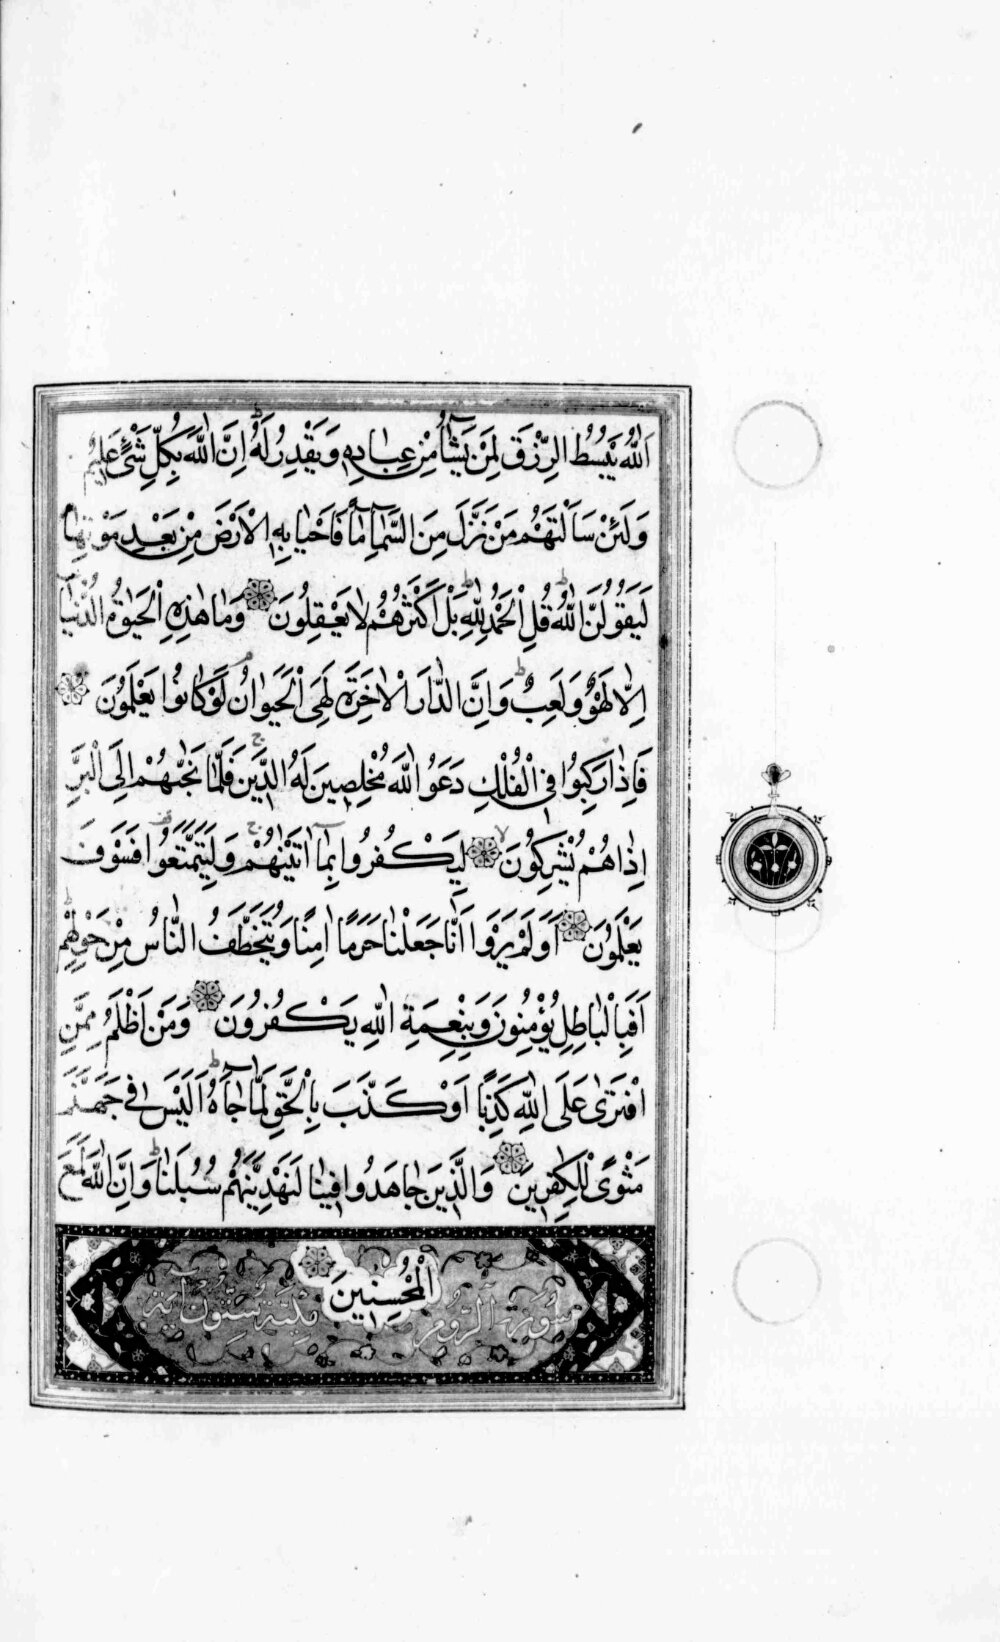 اَللّٰهُ يَبْسُطُ الرِّزْقَ لِمَنْ يَشَآءُ مِنْ عِبَادِهٖ وَيَقْدِرُ لَهُ اِنَّ اللّٰهَ بِكُلِّ شَىْءٍ عَلِيمٌ
وَلَئِنْ سَاَلْتَهُمْ مَنْ نَزَّلَ مِنَ السَّمَآءِ مَآءً فَاَحْيَا بِهِ الْاَرْضَ مِنْ بَعْدِ مَوْتِهَا
لَيَقُولُنَّ اللّٰهُ قُلِ الْحَمْدُ لِلّٰهِ بَلْ اَكْثَرُهُمْ لَا يَعْقِلُونَ وَمَا هٰذِهِ الْحَيٰوةُ الدُّنْيَآ
اِلَّا لَهْوٌ وَلَعِبٌ وَاِنَّ الدَّارَ الْاٰخِرَةَ لَهِىَ الْحَيَوَانُ لَوْ كَانُوا يَعْلَمُونَ
فَاِذَا رَكِبُوا فِى الْفُلْكِ دَعَوُا اللّٰهَ مُخْلِصِينَ لَهُ الدِّينَ فَلَمَّا نَجّٰهُمْ اِلَى الْبَرِّ
اِذَا هُمْ يُشْرِكُونَ لِيَكْفُرُوا بِمَآ اٰتَيْنٰهُمْ وَلِيَتَمَتَّعُوا فَسَوْفَ
يَعْلَمُونَ اَوَلَمْ يَرَوْا اَنَّا جَعَلْنَا حَرَمًا اٰمِنًا وَيُتَخَطَّفُ النَّاسُ مِنْ حَوْلِهِمْ
اَفَبِالْبَاطِلِ يُؤْمِنُونَ وَبِنِعْمَةِ اللّٰهِ يَكْفُرُونَ وَمَنْ اَظْلَمُ مِمَّنِ
افْتَرٰى عَلَى اللّٰهِ كَذِبًا اَوْ كَذَّبَ بِالْحَقِّ لَمَّا جَآءَهُ اَلَيْسَ فِى جَهَنَّمَ
مَثْوًى لِلْكٰفِرِينَ وَالَّذِينَ جَاهَدُوا فِينَا لَنَهْدِيَنَّهُمْ سُبُلَنَا وَاِنَّ اللّٰهَ لَمَعَ
الْمُحْسِنِينَ
سُورَةُ الرُّومِ مَكِّيَّةٌ سِتُّونَ آيَةً